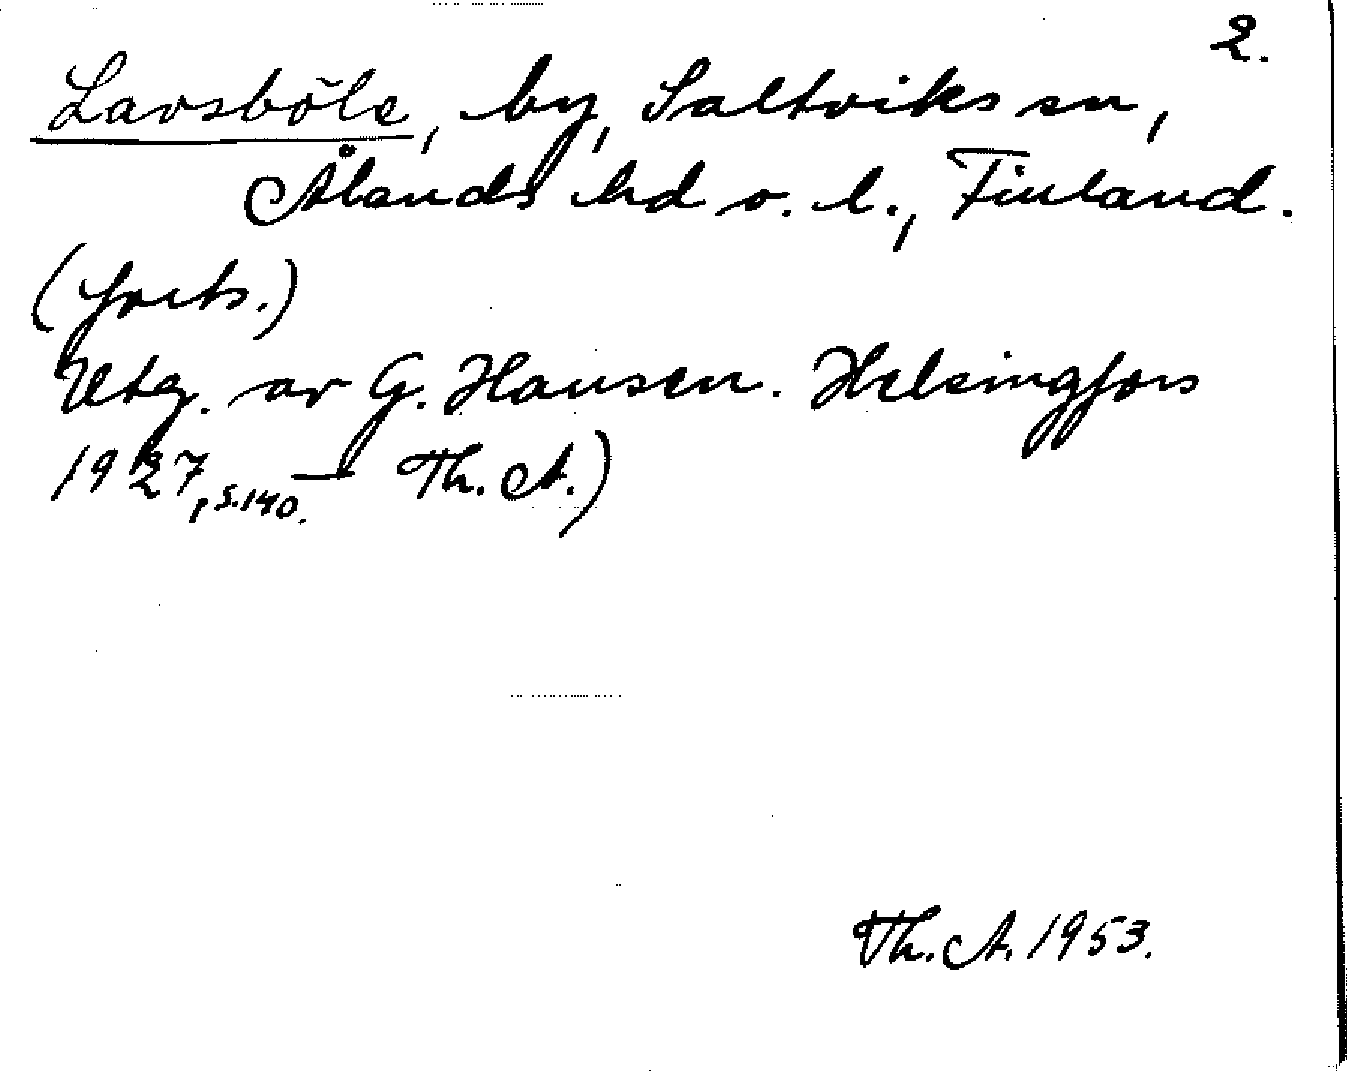 2.
Lavsböle, by, Saltviks sn,
Ålands hd o. l., Finland.
(forts.)
Utg. av G. Hausen. Helsingfors
1927, s. 140. — Th. A.)
Th. A. 1953.